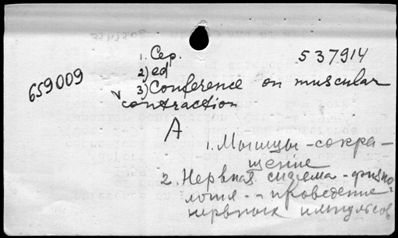 1. Сер.
537914
2) ed
659009
v 3) Conference on muscular
contraction
A
1. Мышцы - сокра-
щение
2. Нервная система - физио
логия - - проведение
нервных импульсов